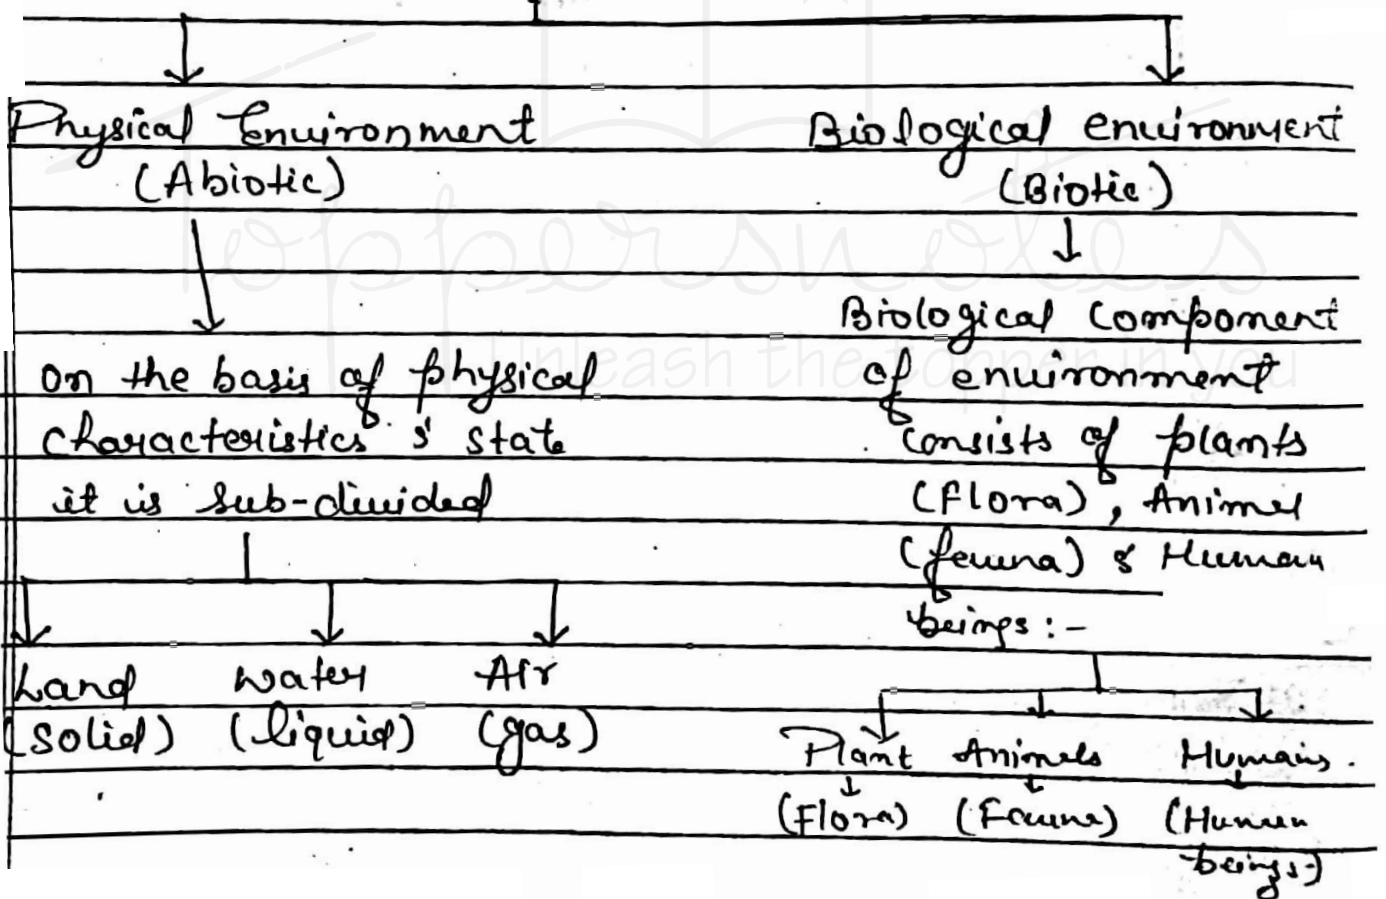 Physical Environment
(Abiotic)
on the basis of physical
characteristics & state
it is sub-divided
Land water Air
(solid) (liquid) (gas)
Biological environment
(Biotic)
Biological Component
of environment
consists of plants
(flora), Animal
(fauna) & Human
beings :-
Plant Animals Humans.
(Flora) (Fauna) (Human
beings)
Toppersnotes
Unleash the topper in you